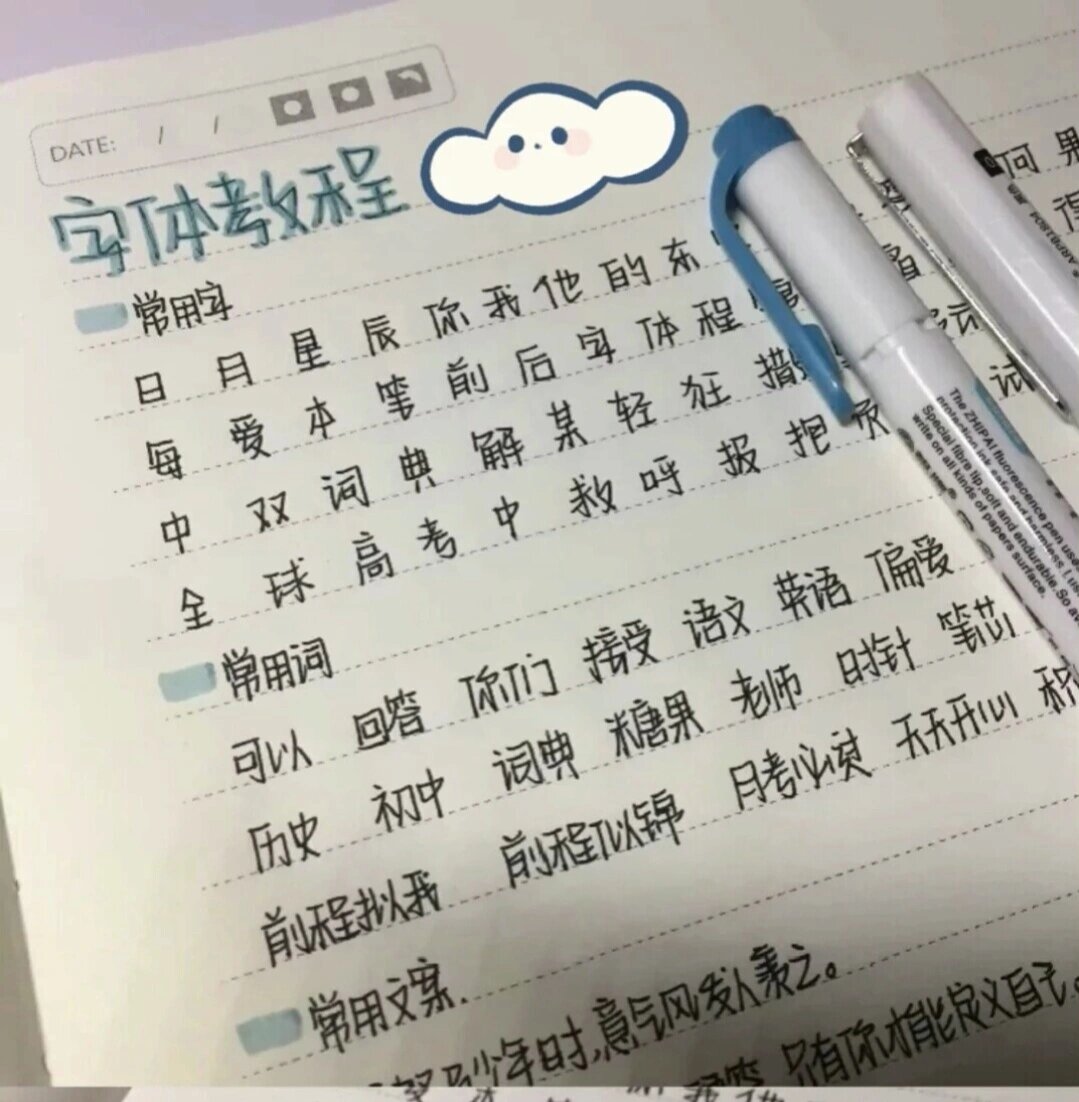 DATE: / /
字体教程
常用字
日 月 星 辰 你 我 他 的 东 何 果
每 爱 本 笔 前 后 字 体 程 得
中 双 词 典 解 某 轻 狂 措 试
全 球 高 考 中 救 呼 报 抱
常用词
可以 回答 你们 接受 语文 英语 偏爱
历史 初中 词典 糖果 老师 时针 笔芯
前程拟我 前程似锦 月考必读 天天开心 积
常用文案
少年时,意气风发人羡之。
只有你才能定义自己。
The ZHIPAI fluorescence pen uses
Special fibre tip,soft and endurable.So
write on all kinds of papers surface.